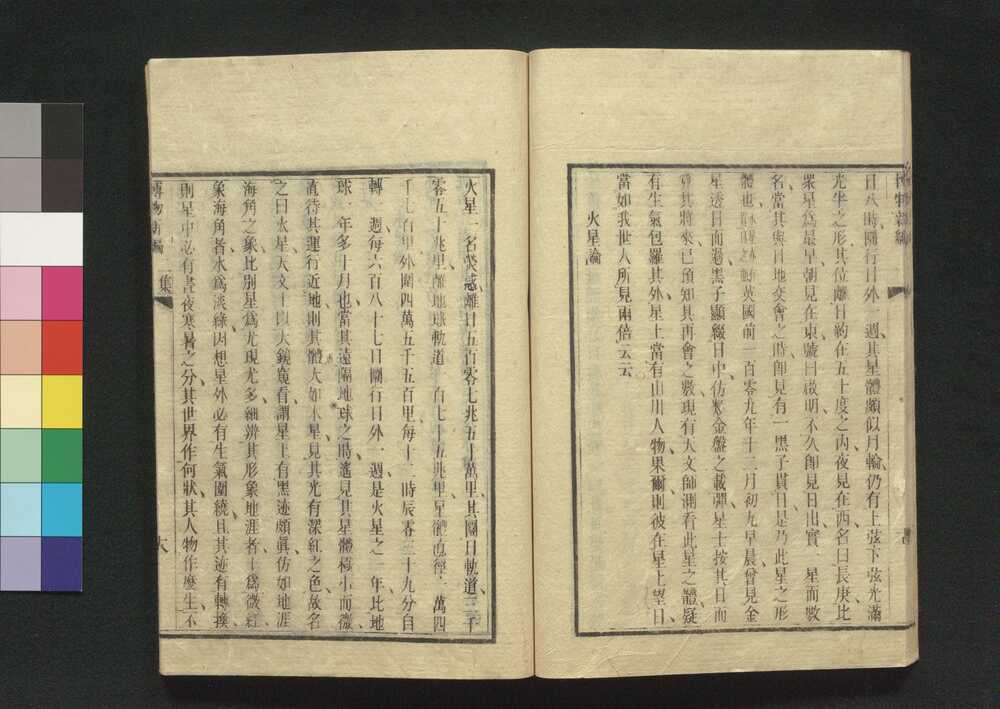 博物新編
日八時圜行日外一週其星體頗似月輪仍有上弦下弦光滿
光半之形其位離日約在五十度之內夜見在西名曰長庚比
衆星爲最早朝見在東號曰啟明不久卽見日出實一星而數
名當其與日地交會之時卽見有一黑子貫日是乃此星之形
體也英國前一百零九年十二月初九早晨曾見金
星透日而過黑子顯綴日中仿如金盤之載彈星士按其日而
其將來已預知其再會之數現有天文師測看此星之體疑
有生氣包羅其外星上當有山川人物果爾則彼在星上望日
當如我世人所見兩倍云云
火星論
火星一名熒惑離日五百零七兆五十萬里其圜日軌道三千
零五十兆里離地球軌道一百七十五兆里星體直徑一萬四
千七百里外圍四萬五千五百里每十二時辰零三十九分自
轉一週每六百八十七日圜行日外一週是火星之一年比地
球一年多十月也當其遠隔地球之時遙見其星體極小而微
直待其運行近地則其體大如木星見其光有深紅之色故名
之曰火星天文士以大鏡窺看謂星上有黑迹頗眞仿如地涯
海角之象比別星爲尤現尤多細辨其形象地涯者土爲微紅
象海角者水爲淡綠因想星外必有生氣圍繞且其迹有轉撲
則星中必有晝夜寒暑之分其世界作何狀其人物作麼生不
博物新編
二集
六